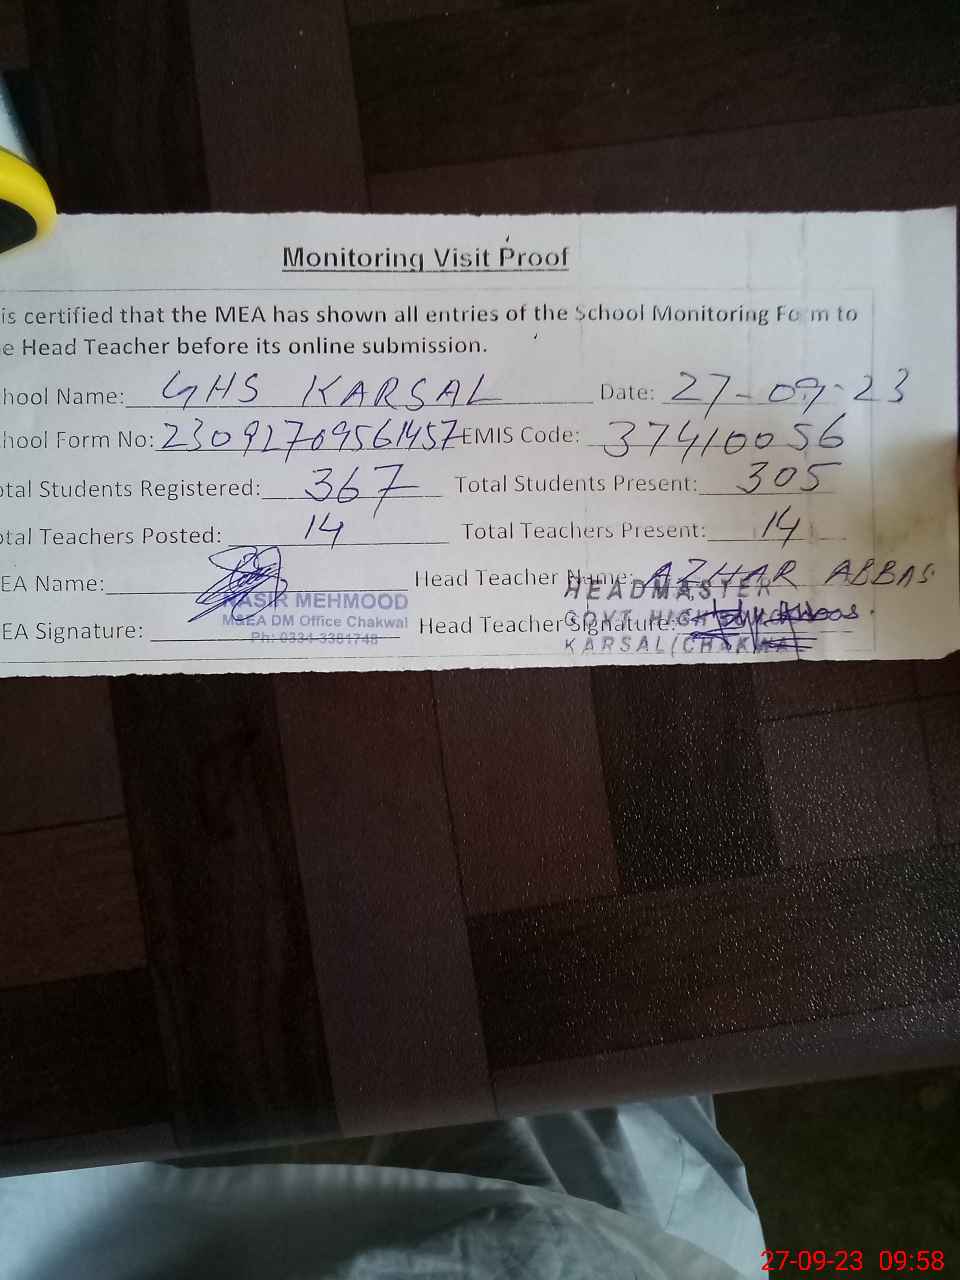 Monitoring Visit Proof
is certified that the MEA has shown all entries of the School Monitoring Form to
e Head Teacher before its online submission.
hool Name: GHS KARSAL Date: 27-09-23
hool Form No: 23091709561457 EMIS Code: 37410056
otal Students Registered: 367 Total Students Present: 305
otal Teachers Posted: 14 Total Teachers Present: 14
EA Name: Head Teacher Name: AZHAR ABBAS
NASIR MEHMOOD HEADMASTER
M&EA DM Office Chakwal GOVT. HIGH
EA Signature: Head Teacher Signature:
Ph: 0334-3301748 KARSAL (CHAKWAL
27-09-23 09:58